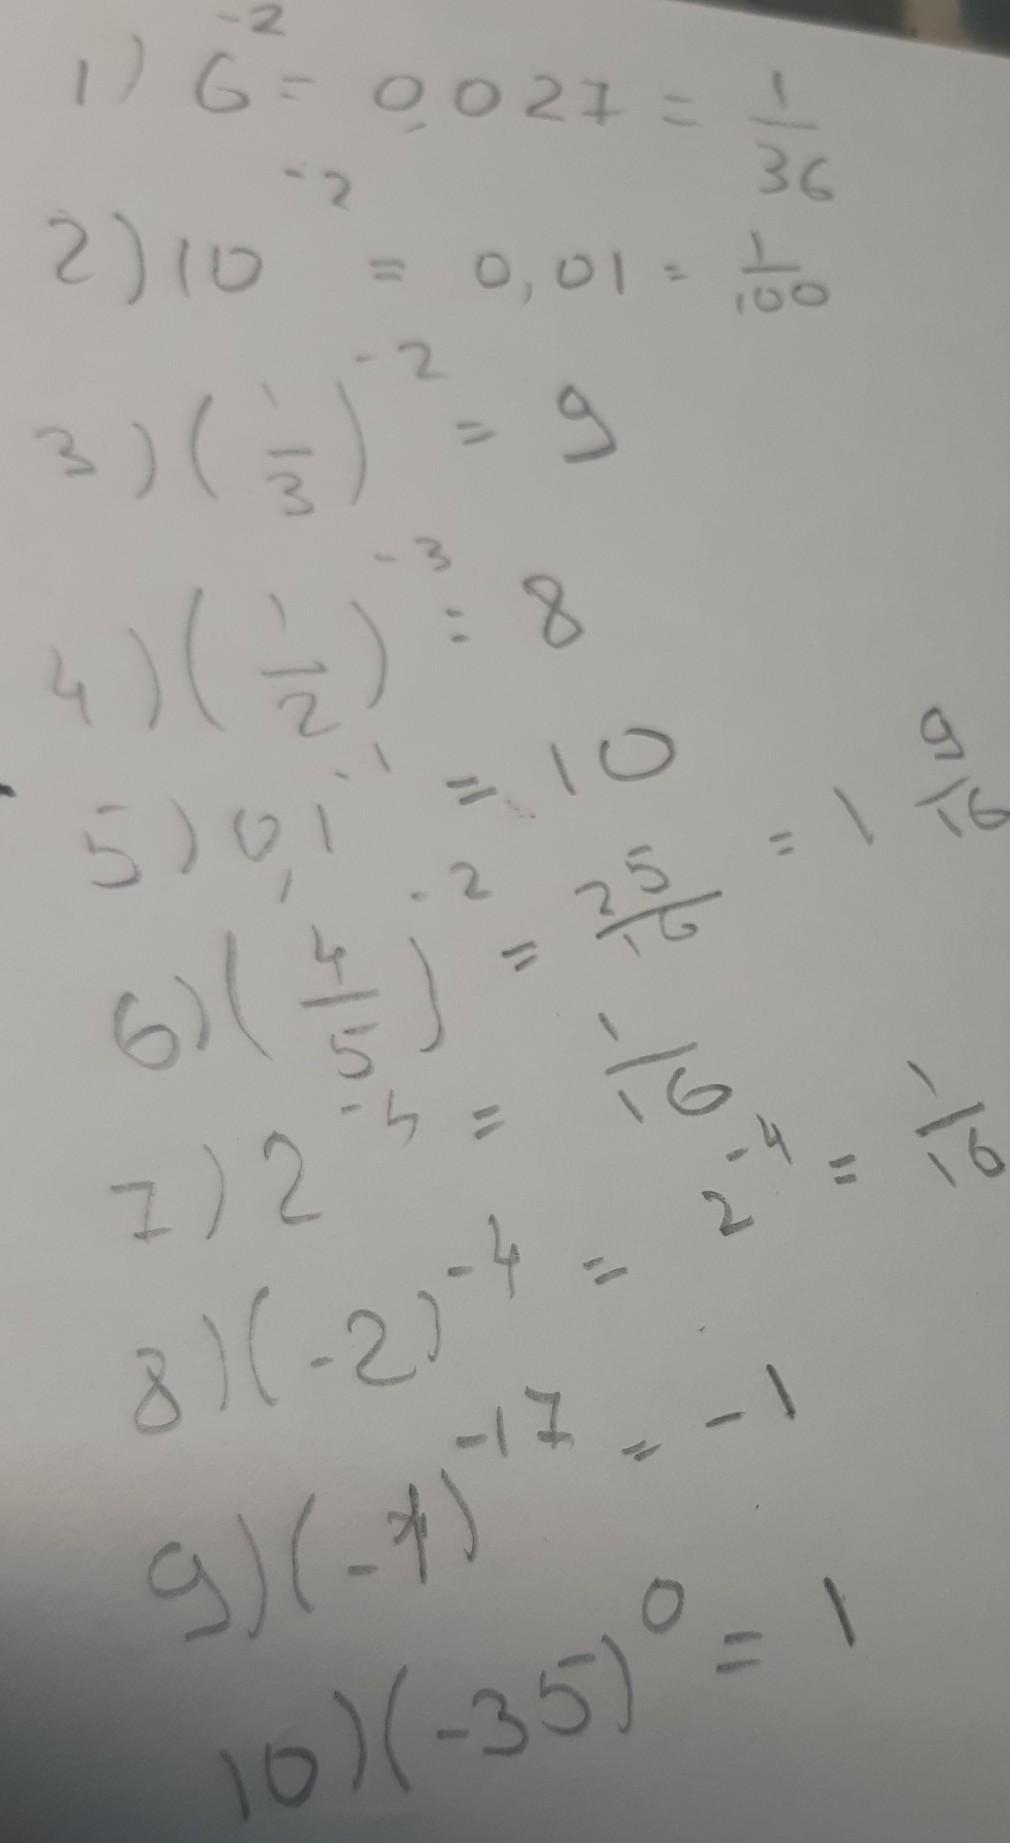 1) 6^-2 = 0,027 = 1/36
2) 10^-2 = 0,01 = 1/100
3) (1/3)^-2 = 9
4) (1/2)^-3 = 8
5) 0,1^-1 = 10
6) (4/5)^-2 = 25/16 = 1 9/16
7) 2^-4 = 1/16
8) (-2)^-4 = 2^-4 = 1/16
9) (-1)^-17 = -1
10) (-35)^0 = 1